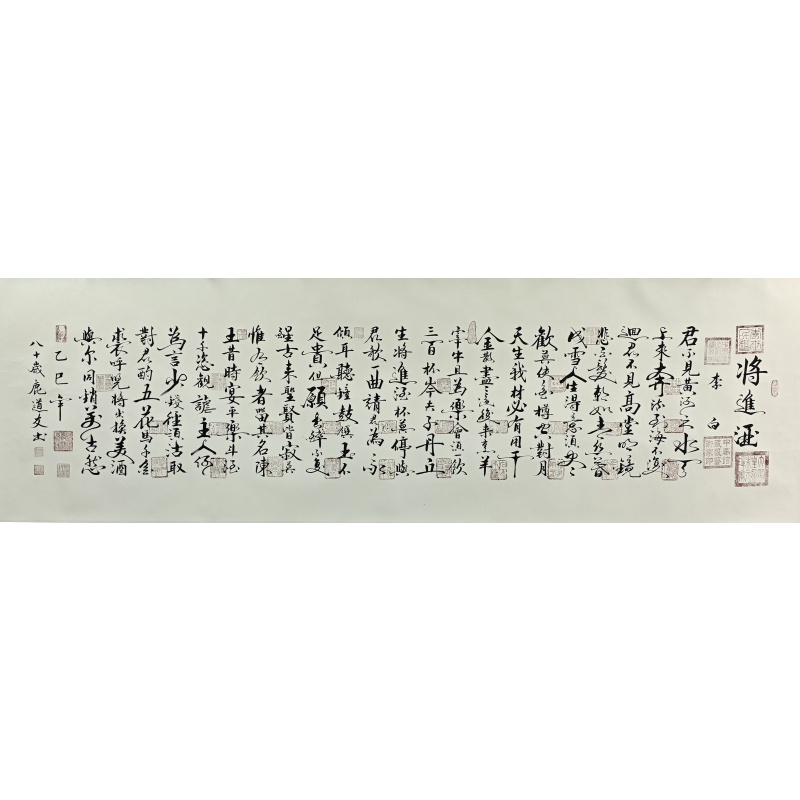 将進酒
李白
君不見黃河之水天
上來奔流到海不復
迴君不見高堂明鏡
悲白髮朝如青絲暮
成雪人生得意須盡
歡莫使金樽空對月
天生我材必有用千
金散盡還復來烹羊
宰牛且為樂會須飲
三百杯岑夫子丹丘
生將進酒杯莫停與
君歌一曲請君為我
傾耳聽鐘鼓饌玉不
足貴但願長醉不復
醒古來聖賢皆寂寞
惟有飲者留其名陳
王昔時宴平樂斗酒
十千恣歡謔主人何
為言少錢徑須沽取
對君酌五花馬千金
裘呼兒將出換美酒
與尔同銷萬古愁
乙巳年
八十歲鹿道文書